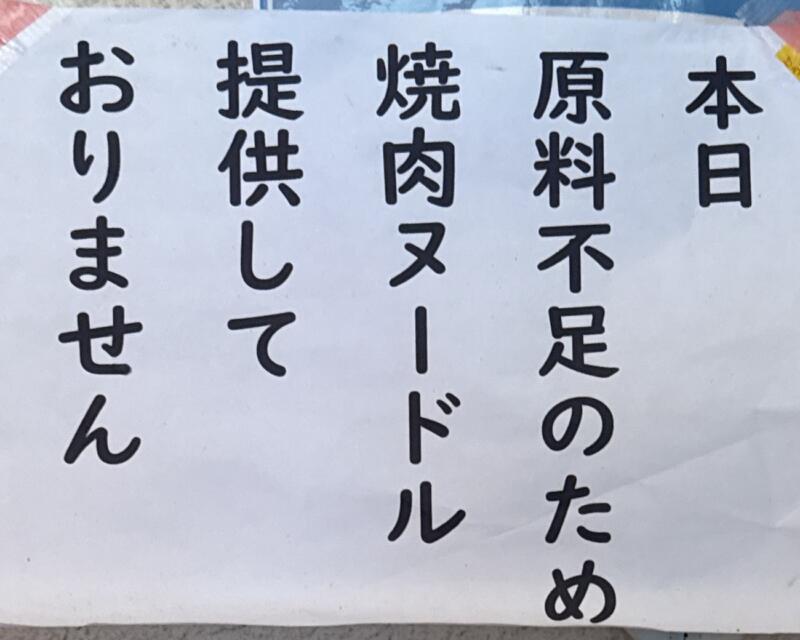 本日
原料不足のため
焼肉ヌードル
提供して
おりません